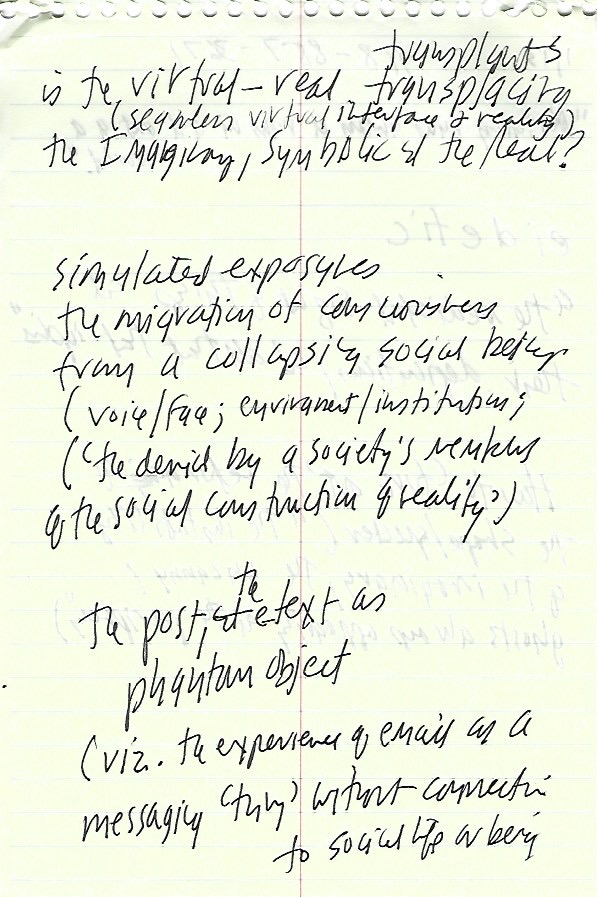 transplants
is the virtual-real transplacing
(seamless virtual interface & reality)
the Imaginary, Symbolic & the Real?
simulated exposures
the migration of consciousness
from a collapsing social being
(voice/face; environment/institutions;
("the denial by a society's members
of the social construction of reality")
the
the post, the text as
phantom object
(viz. the experience of email as a
messaging 'thing' without connection
to social life or being